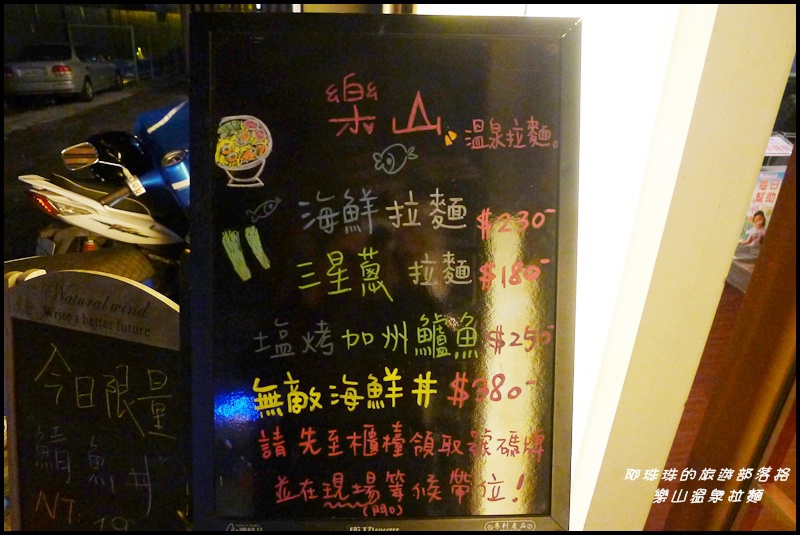 樂山 溫泉拉麵。
海鮮拉麵 $230-
三星蔥 拉麵 $180-
塩烤加州鱸魚 $250-
無敵海鮮丼 $380-
請 先至櫃檯領取號碼牌
並在現場等候帶位!
(門口)
專利產品
Natural wind
Write a better future
今日限量
鯖魚丼
NT.
每日
幫助
阿珠珠的旅遊部落格
樂山溫泉拉麵